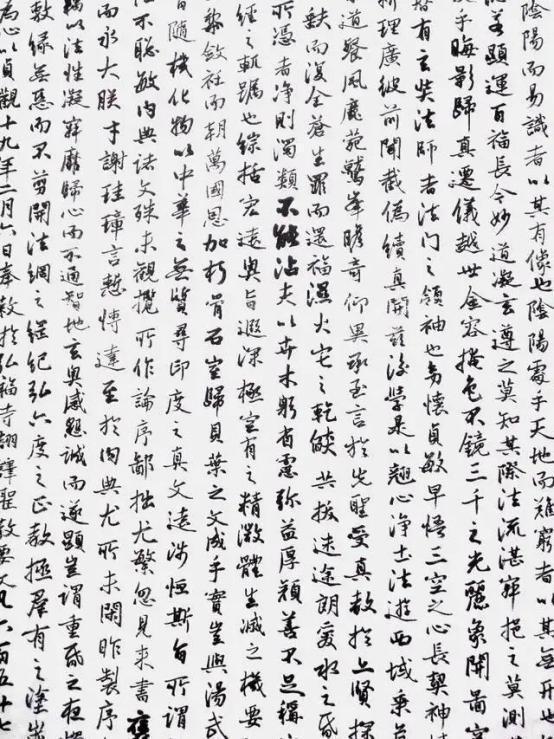 陰陽而易識者以其有像也陰陽處乎天地而難窮者以其無形也
若顯運百福長今妙道凝玄遵之莫知其際法流湛寂挹之莫測
乎晦影歸真遷儀越世金容掩色不鏡三千之光麗象開圖空
有玄奘法師者法門之領袖也幼懷貞敏早悟三空之心長契神情
理廣彼前聞截偽續真開茲後學是以翹心淨土法遊西域乘危
道餐風鹿苑鷲峯瞻奇仰異承至言於先聖受真教於上賢探
缺而復全蒼生罪而還福濕火宅之乾燄共拔迷途朗愛水之昏
所憑者淨則濁類不能沾夫以卉木躬省慮彌益厚顏善不足稱
經之軌躅也綜括宏遠奧旨遐深極空有之精微體生滅之機要
黎斂衽而朝萬國恩加朽骨石室歸貝葉之文咸乎實豈與湯武
隨機化物以中華之無質尋印度之真文遠涉恒斯旬所謂
不聡敏內典諸文殊未觀攬所作論序鄙拙尤繁忽見來書褒
而永大朕才謝珪璋言慙博達至於內典尤所未閑昨製序
以法性凝寂靡歸心而不通智地玄奧感懇誠而遂顯豈謂重昏之夜燭
教緣無惡而不翦開法網之綱紀弘六度之正教拯羣有之塗炭
心以貞觀十九年二月六日奉敕於弘福寺翻譯聖教要文凡六百五十七